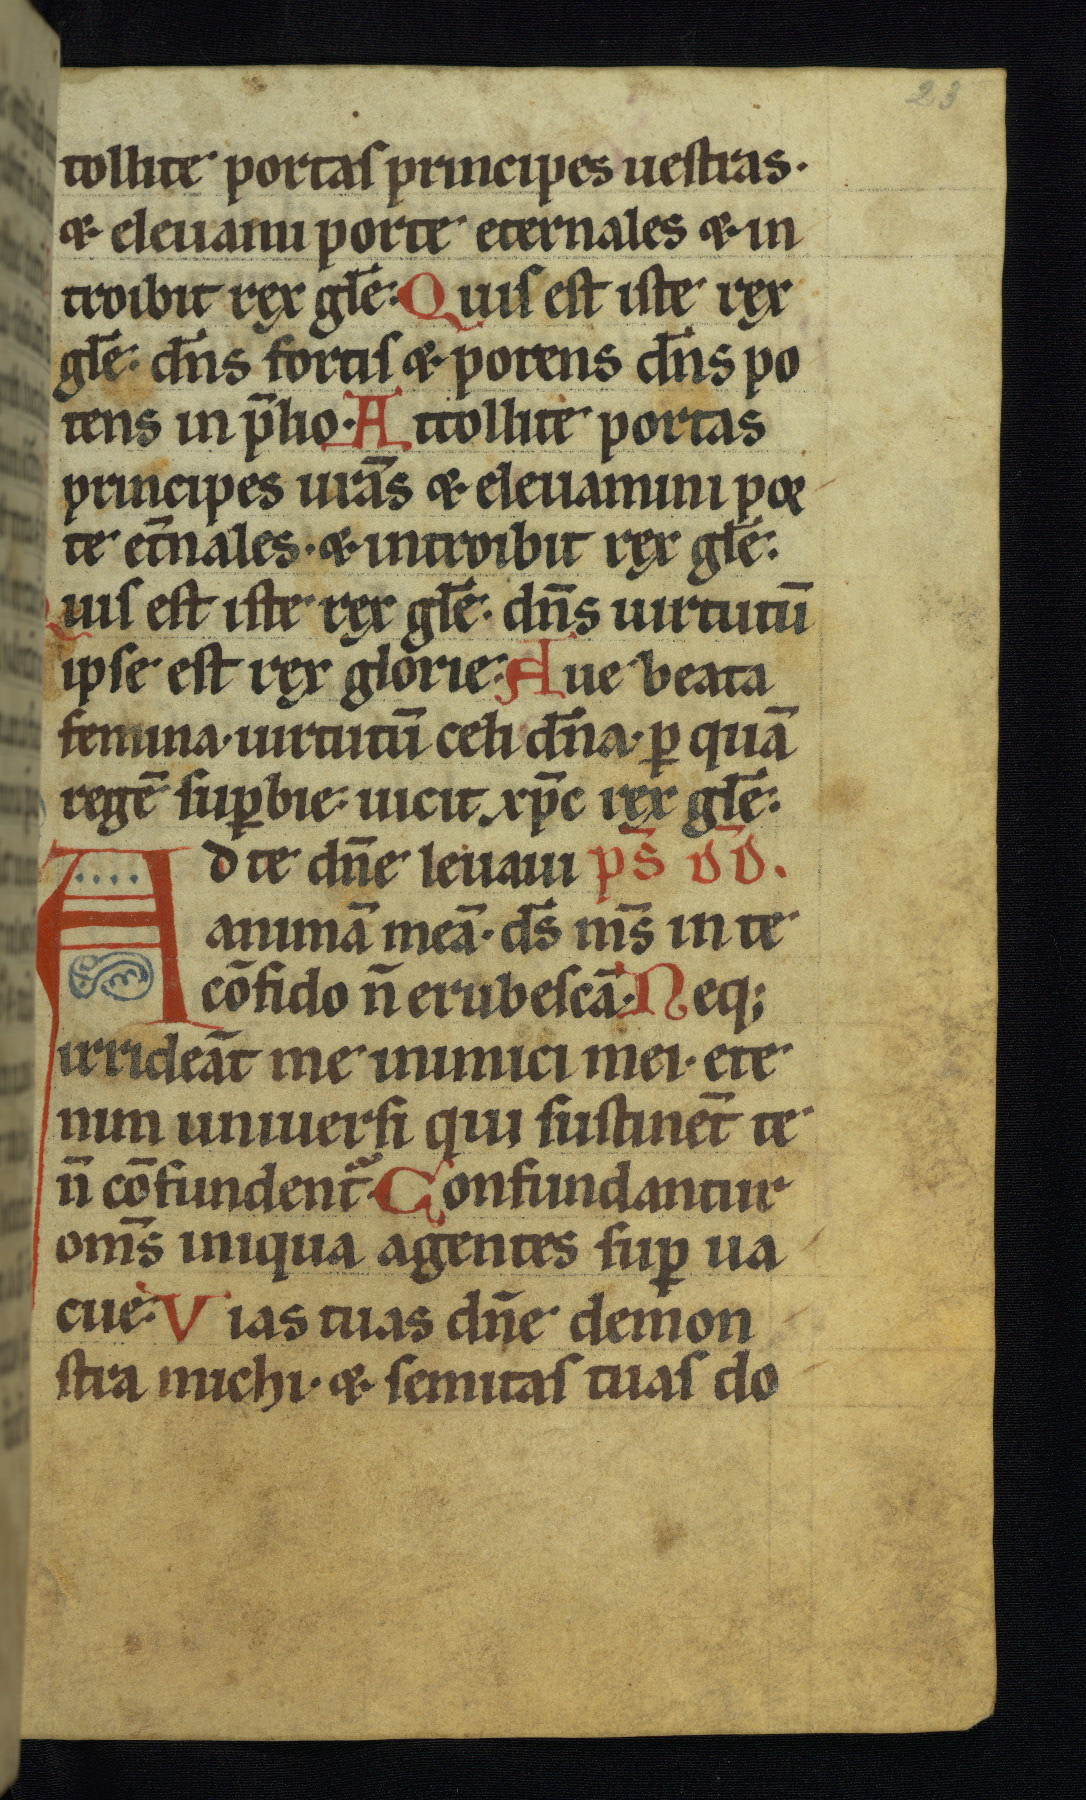 23
tollite portas principes uestras·
& eleuami porte eternales & in
troibit rex gl̄e: Quis est iste rex
gl̄e: dn̄s fortis & potens dn̄s po
tens in p̄lio· Attollite portas
principes ur̄as & eleuamini por
te et̄nales· & introibit rex gl̄e:
Quis est iste rex gl̄e: dn̄s uirtutū
ipse est rex glorie: Aue beata
femina· uirtutū celi dn̄a· ꝑ quā
regē suꝑbie: uicit xp̄c rex gl̄e:
Ad te dn̄e leuaui ps̄ dd̄.
animā meā· ds̄ ms̄ in te
cōfido n̄ erubescā· Neq;
irrideāt me inimici mei· ete
nim uniuersi qui sustinēt te
n̄ cōfundent᷑· Confundantur
om̄s iniqua agentes suꝑ ua
cue: Vias tuas dn̄e demon
stra michi· & semitas tuas do